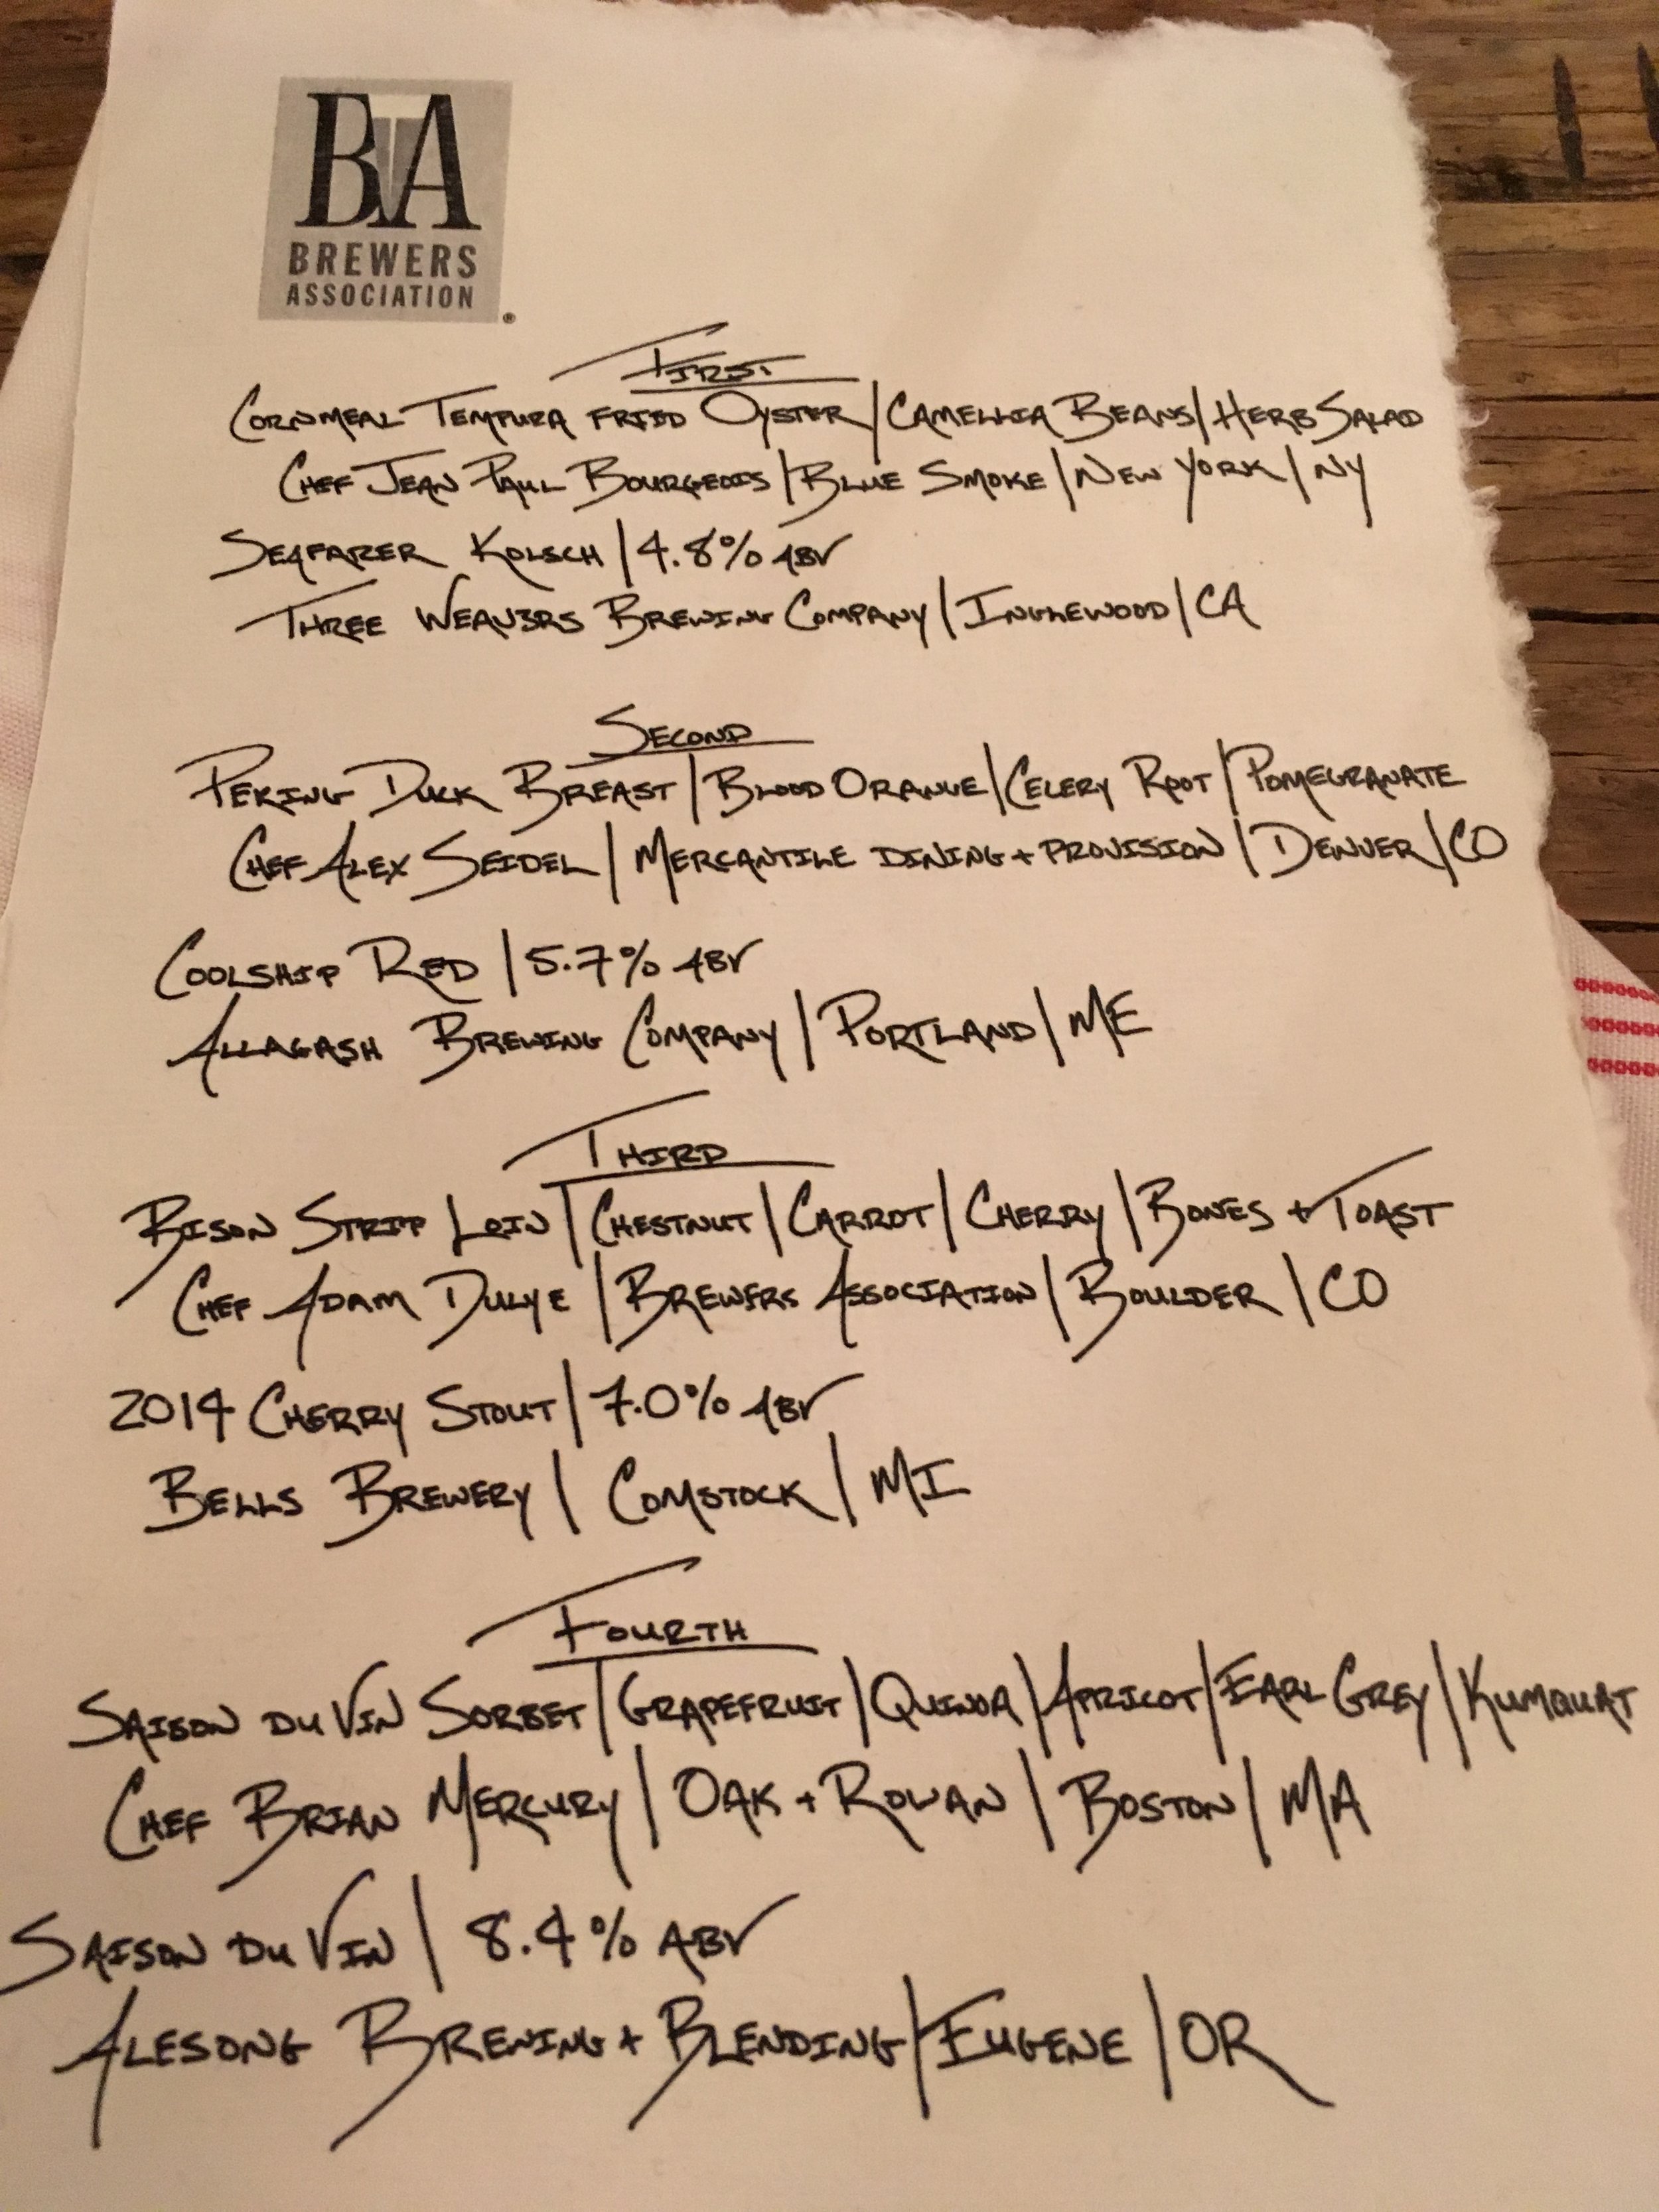 BA
BREWERS
ASSOCIATION
®
FIRST
CORNMEAL TEMPURA FRIED OYSTER | CAMELLIA BEANS | HERB SALAD
CHEF JEAN PAUL BOURGEOIS | BLUE SMOKE | NEW YORK | NY
SEAFARER KOLSCH | 4.8% ABV
THREE WEAVERS BREWING COMPANY | INGLEWOOD | CA
SECOND
PEKING DUCK BREAST | BLOOD ORANGE | CELERY ROOT | POMEGRANATE
CHEF ALEX SEIDEL | MERCANTILE DINING + PROVISION | DENVER | CO
COOLSHIP RED | 5.7% ABV
ALLAGASH BREWING COMPANY | PORTLAND | ME
THIRD
BISON STRIP LOIN | CHESTNUT | CARROT | CHERRY | BONES + TOAST
CHEF ADAM DULYE | BREWERS ASSOCIATION | BOULDER | CO
2014 CHERRY STOUT | 7.0% ABV
BELLS BREWERY | COMSTOCK | MI
FOURTH
SAISON DU VIN SORBET | GRAPEFRUIT | QUINOA | APRICOT | EARL GREY | KUMQUAT
CHEF BRIAN MERCURY | OAK + ROWAN | BOSTON | MA
SAISON DU VIN | 8.4% ABV
ALESONG BREWING + BLENDING | EUGENE | OR